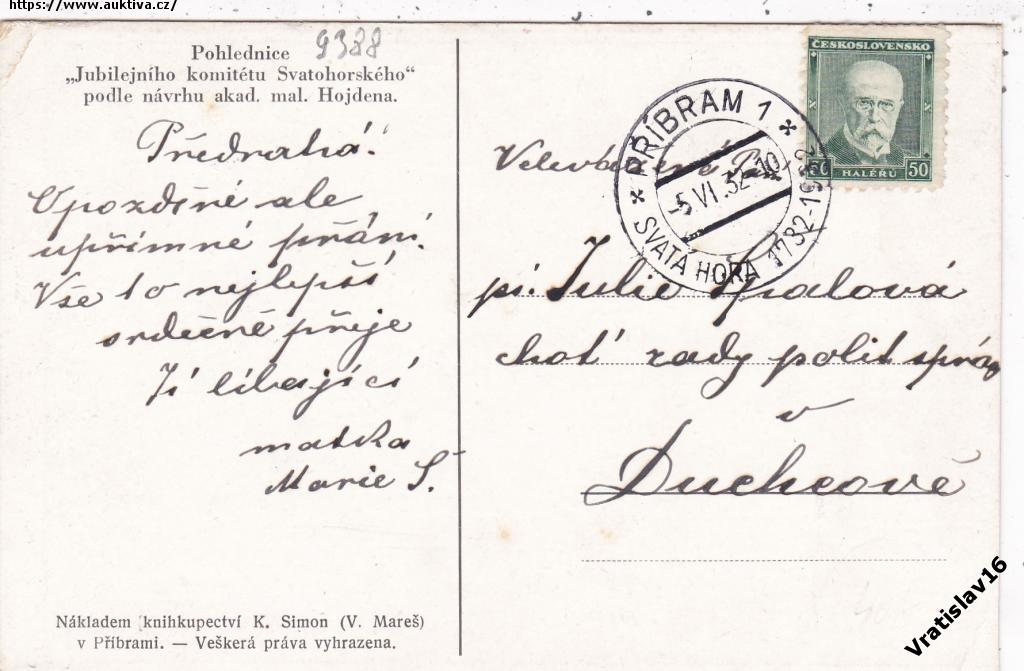 https://www.auktiva.cz/
9388
Pohlednice
„Jubilejního komitétu Svatohorského“
podle návrhu akad. mal. Hojdena.
Předrahá!
Opozděné ale
upřímné přání.
Vše to nejlepší
srdečně přeje
Tě líbající
matka
Marie Š.
Nákladem knihkupectví K. Simon (V. Mareš)
v Příbrami. — Veškerá práva vyhrazena.
ČESKOSLOVENSKO
50 HALÉŘŮ 50
PŘÍBRAM 1
-5.VI.32-10
SVATÁ HORA 1732-1932
Velevážená Paní
pí. Julie
choť rady polit správy
v
Duchcově
Vratislav16